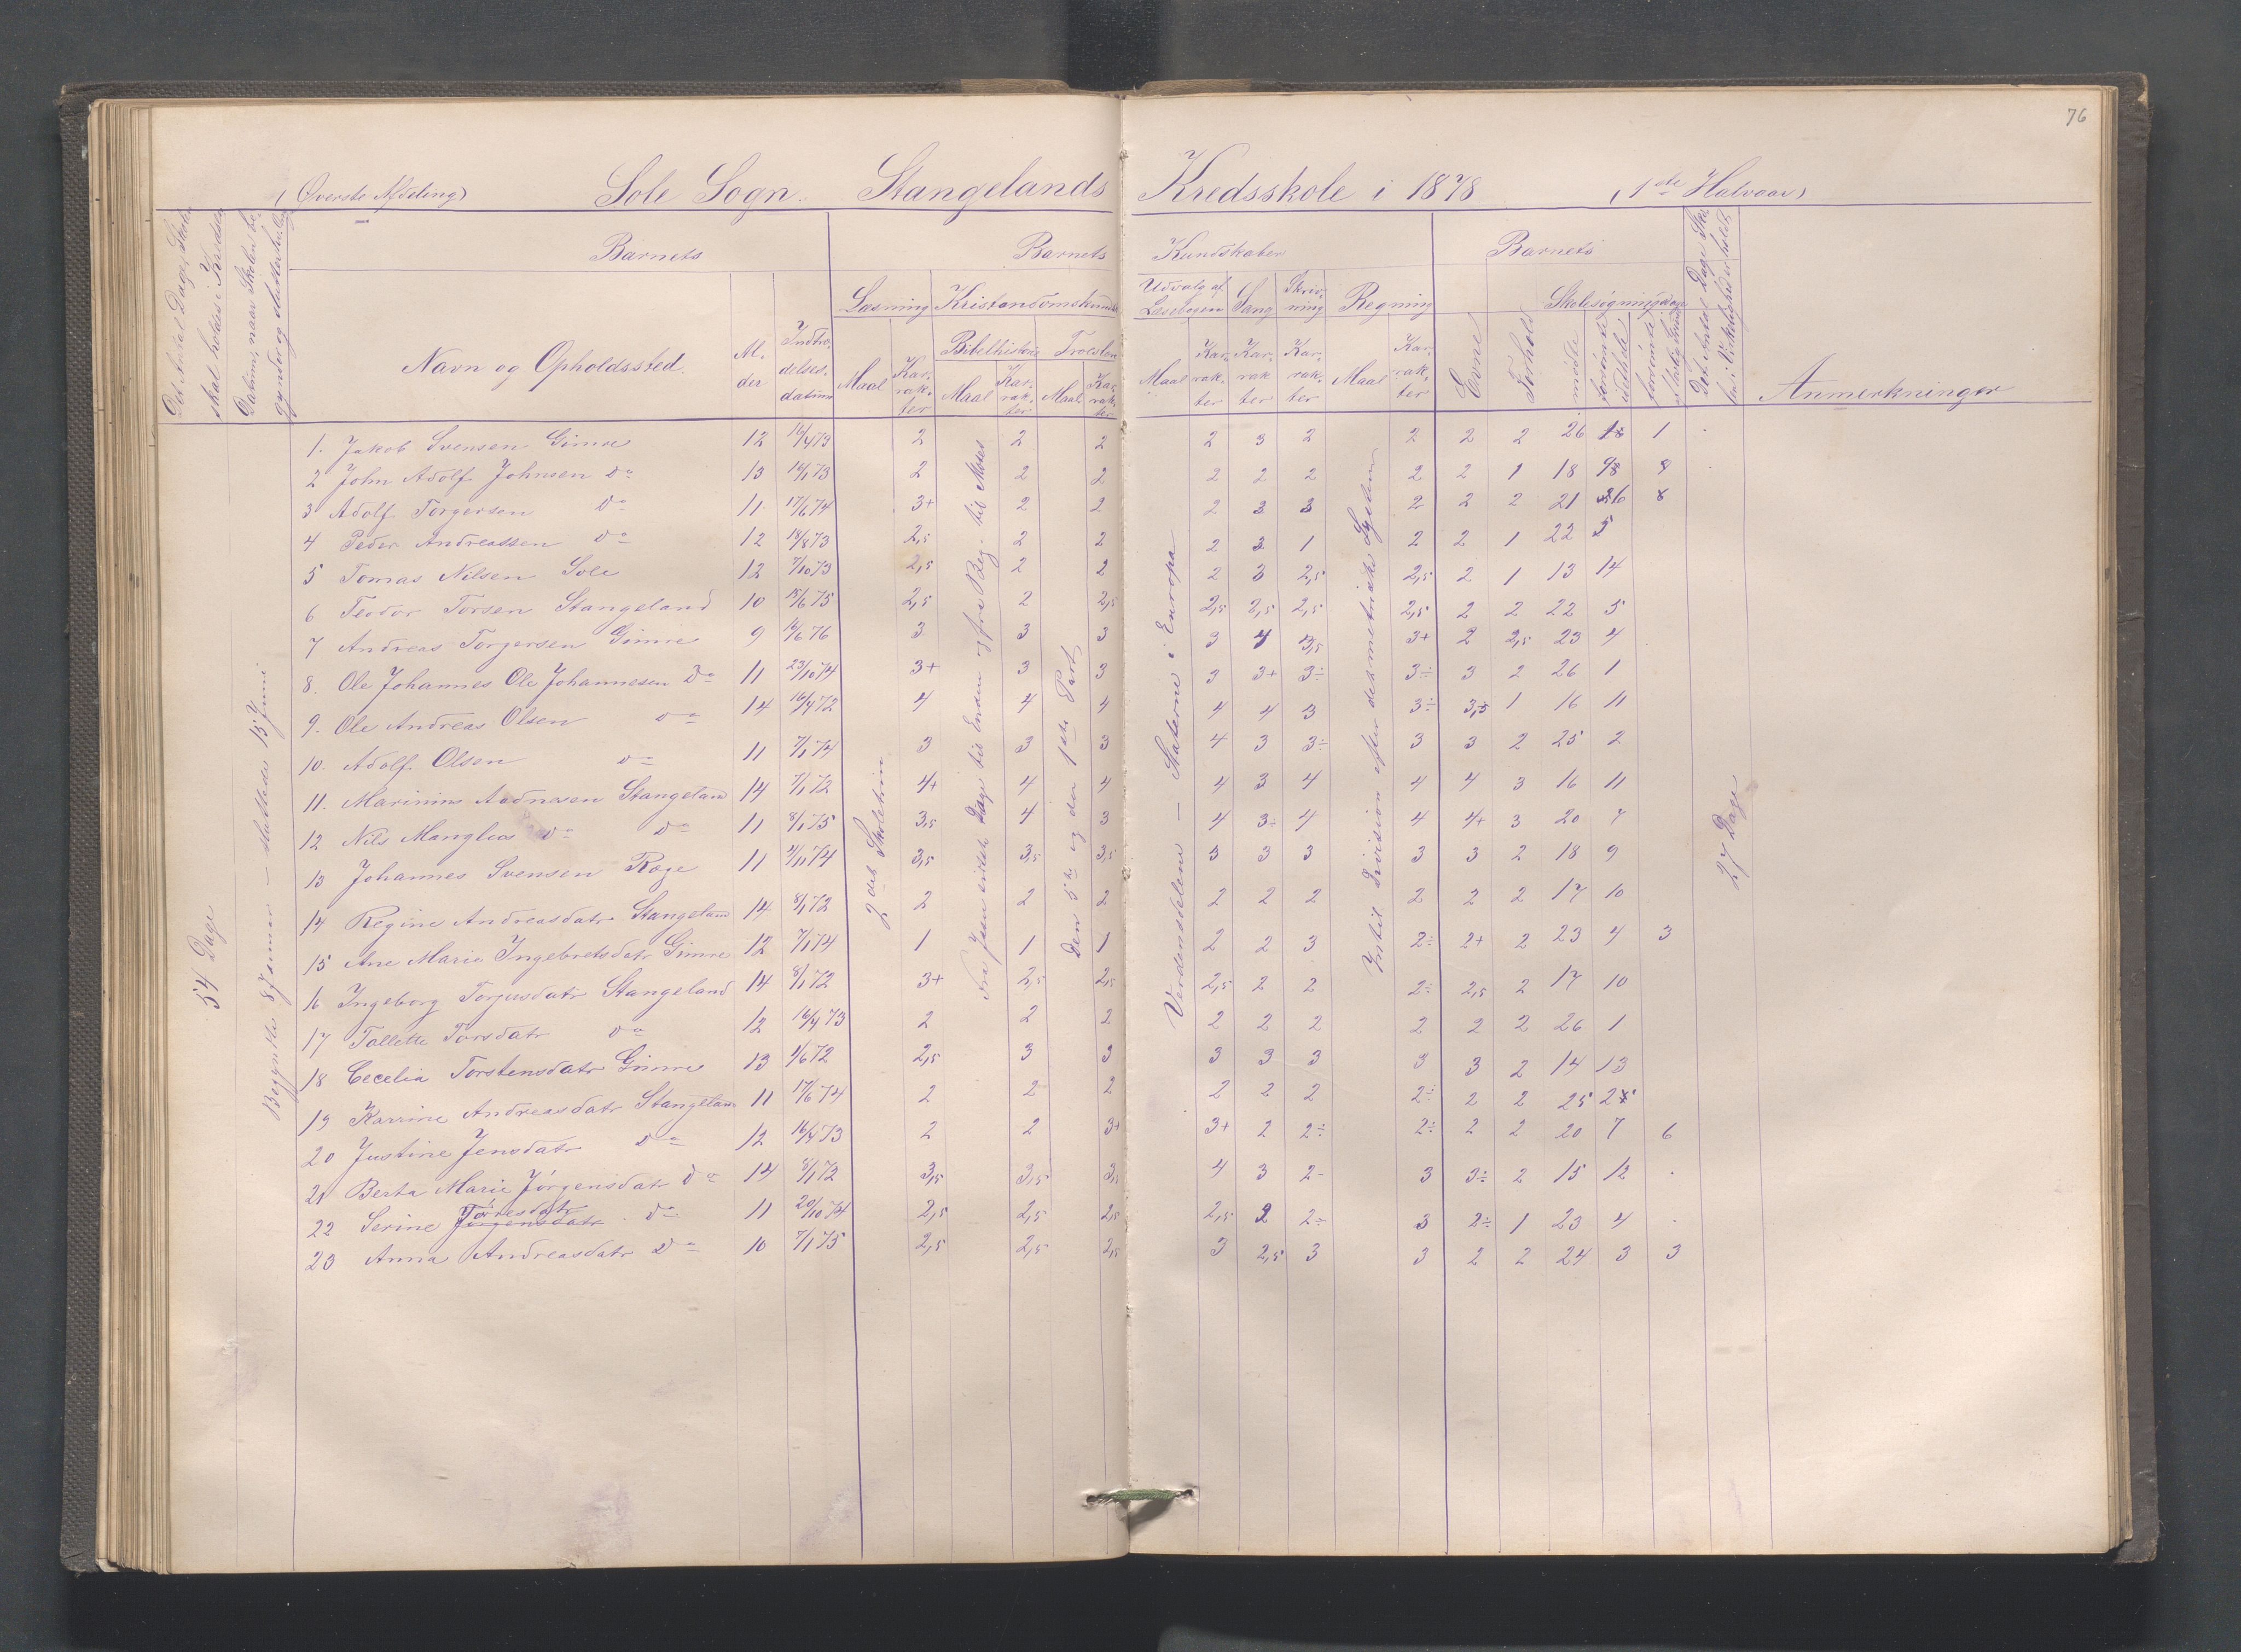 76
(Øverste Afdeling) Sole Sogn. Stangelands Kredsskole i 1878 (1ste Halvaar)
Det Antal Dage, Skolen skal holdes i Kredsen
Datum, naar Skolen be-
gynder og slutter
Barnets
Barnets Kundskaber
Barnets
Navn og Opholdssted.
Al-
der
Indtræ-
delses-
datum
Læsning
Maal
Kar-
rak-
ter
Kristendomskundskab
Bibelhistorie
Maal
Kar-
rak-
ter
Troeslære
Maal
Kar-
rak-
ter
Udvalg af
Læsebogen
Maal
Kar-
rak-
ter
Sang
Kar-
rak
ter
Skriv-
ning
Kar-
rak-
ter
Regning
Maal
Kar-
rak-
ter
Evne
Forhold
Skolesøgningsdage
mødte
forsømte
forsømte
Det Antal Dage
Anmerkninger
54 Dage
Begyndte 8 Januar – sluttede 15 Juni
2det Skoletrin
Fra Josen sidste Dage til Enden og fra Beg. til Moses
Den 5te og den 1ste Part
Verdensdelene – Staterne i Europa
Indtil Division efter det metriske System
27 Dage
1. Jakob Svensen Gimre 12 16/4 73 2 2 2 2 3 2 2 2 2 26 1
2 John Adolf Johnsen do 13 16/1 73 2 2 2 2 2 2 2 2 1 18 9
3 Adolf Torgersen do 11 17/6 74 3+ 2 2 2 3 3 2 2 2 21 6
4 Peder Andreassen do 12 18/8 73 2,5 2 2 2 3 1 2 2 1 22 5
5 Tomas Nilsen Sole 12 7/10 73 2,5 2 2 2 3 2,5 2,5 2 1 13 14
6 Teodor Torsen Stangeland 10 18/6 75 2,5 2 2,5 2,5 2,5 2,5 2,5 2 2 22 5
7 Andreas Torgersen Gimre 9 16/6 76 3 3 3 3 4 3,5 3+ 2 2,5 23 4
8. Ole Johannes Ole Johannesen Do 11 23/10 74 3+ 3 3 3 3+ 3÷ 3÷ 3 2 26 1
9. Ole Andreas Olsen do 14 16/4 72 4 4 4 4 4 3 3÷ 3,5 1 16 11
10. Adolf Olsen do 11 7/1 74 3 3 3 4 3 3÷ 3 3 2 25 2
11. Marinius Aadnesen Stangeland 14 7/1 72 4+ 4 4 4 3 4 4 4 3 16 11
12 Nils Manglios do do 11 8/1 75 3,5 4 3 4 3÷ 4 4 4+ 3 20 7
13 Johannes Svensen Røge 11 4/11 74 3,5 3,5 3,5 3 3 3 3 3 2 18 9
14 Regine Andreasdatr Stangeland 14 8/1 72 2 2 2 2 2 2 2 2 2 17 10
15 Ane Marie Ingebretsdatr Gimre 12 7/1 74 1 1 1 2 2 3 2÷ 2+ 2 23 4 3
16 Ingeborg Torjusdatr Stangeland 14 8/1 72 3+ 2,5 2,5 2,5 2 2 2÷ 2,5 2 17 10
17 Tallette Torsdatr do 12 16/4 73 2 2 2 2 2 2 2 2 2 26 1
18 Cecelia Torstensdatr Gimre 13 4/6 72 2,5 3 3 3 3 3 3 3 2 14 13
19 Karrine Andreasdatr Stangeland 11 17/6 74 2 2 2 2 2 2 2÷ 2 2 25 2
20 Justine Jensdatr do 12 16/4 73 2 2 3+ 3+ 2 2÷ 2÷ 2 2 20 7 6
21 Berta Marie Jörgensdatr do 14 8/1 72 3,5 3,5 3,5 4 3 2- 3 3÷ 2 15 12
22 Serine Jörgensdatr Töresdatr do 11 20/10 74 2,5 2,5 2,5 2,5 2 2÷ 3 2÷ 1 23 4
23 Anna Andreasdatr do 10 7/1 75 2,5 2,5 2,5 3 2,5 3 3 2 2 24 3 3